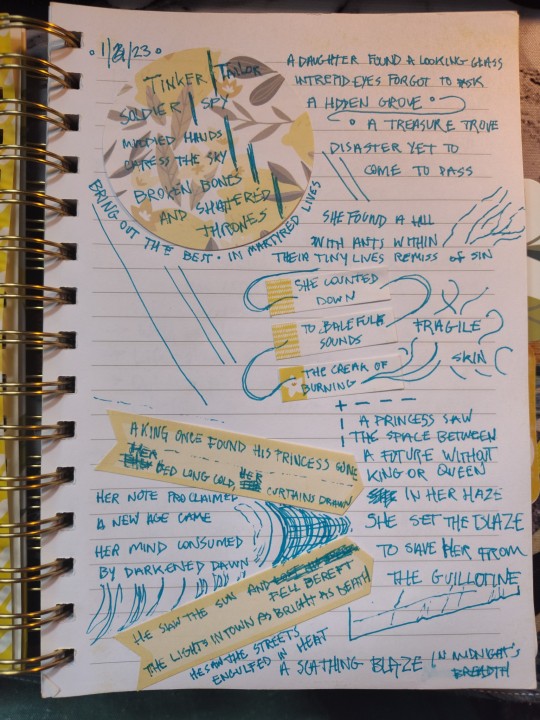 1/21/23
TINKER | TAILOR
SOLDIER | SPY
MUDDIED HANDS
CARESS THE SKY
BROKEN BONDS
AND SHATTERED
THRONES
BRING OUT THE BEST IN MARTYRED LIVES
A DAUGHTER FOUND A LOOKING GLASS
INTREPID EYES FORGOT TO ASK
A HIDDEN GROVE
A TREASURE TROVE
DISASTER YET TO
COME TO PASS
SHE FOUND A HILL
WITH ANTS WITHIN
THEIR TINY LIVES REMISS OF SIN
SHE COUNTED
DOWN
TO BALEFUL
SOUNDS
THE CREAK OF
BURNING
FRAGILE
SKIN
A KING ONCE FOUND HIS PRINCESS GONE
HER
BED LONG COLD, HER CURTAINS DRAWN
HER NOTE PROCLAIMED
A NEW AGE CAME
HER MIND CONSUMED
BY DARKENED DAWN
HE SAW THE SUN AND
FELL BEREFT
THE LIGHTS IN TOWN AS BRIGHT AS DEATH
HE SAW THE STREETS
ENGULFED IN HEAT
A SCATHING BLAZE IN MIDNIGHT'S
BREADTH
A PRINCESS SAW
THE SPACE BETWEEN
A FUTURE WITHOUT
KING OR QUEEN
IN HER HAZE
SHE SET THE BLAZE
TO SAVE HER FROM
THE GUILLOTINE